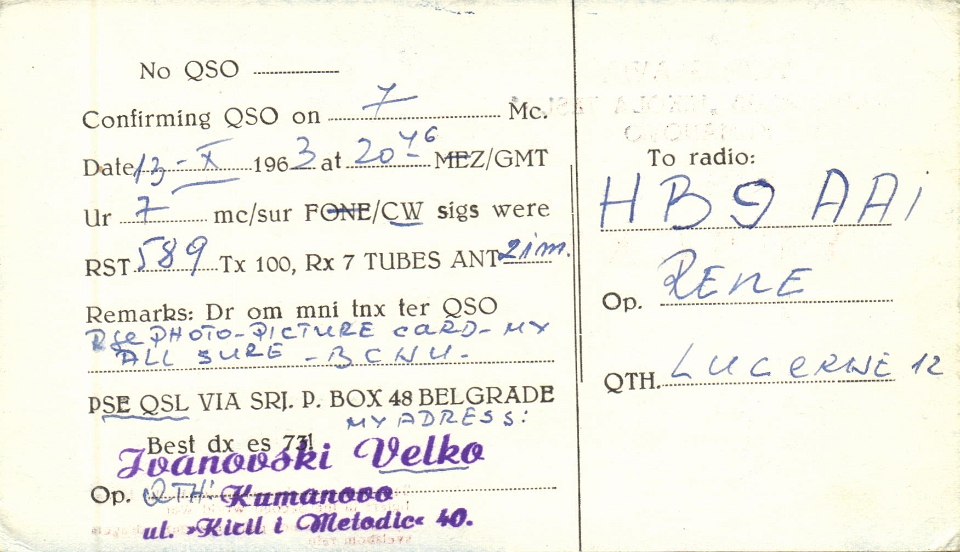 No QSO
Confirming QSO on 7 Mc.
Date 13-X 1963 at 20 46 MEZ/GMT
Ur 7 mc/sur FONE/CW sigs were
RST 589 Tx 100, Rx 7 TUBES ANT 21m.
Remarks: Dr om mni tnx ter QSO
PSE PHOTO-PICTURE CARD-MY
ALL SURE - BCNU -
PSE QSL VIA SRJ. P. BOX 48 BELGRADE
MY ADRESS:
Best dx es 73!
Ivanovski Velko
Op. QTH: Kumanovo
ul. »Kiril i Metodic« 40.
To radio:
HB9AAI
Op. RENE
QTH. LUCERNE 12